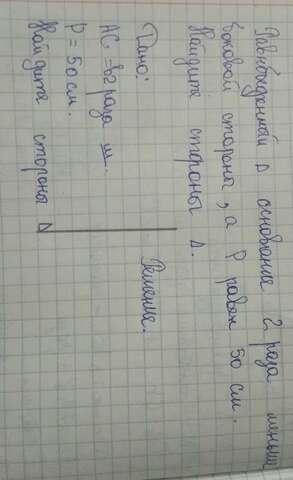 Равнбедренный Δ основание 2 раза меньш
боковой стороны, а P равен 50 см.
Найдите стороны Δ.
Дано:
AC = в 2 раза м.
P = 50 см.
Найдите стороны Δ
Решение.